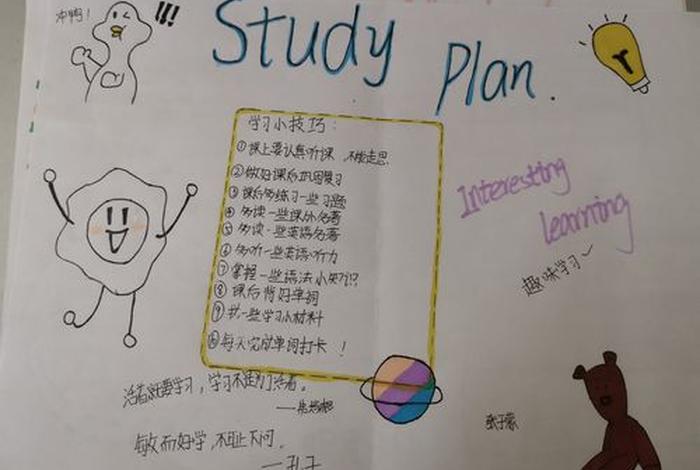 冲鸭！
!!!
Study Plan.
学习小技巧：
①课上要认真听课 不能走思
②做好课后巩固复习
③课后多练习一些习题
④多读一些课外名著
⑤多读一些英语名著
⑥多听一些英语听力
⑦掌握一些语法小知识
⑧课后背好单词
⑨找一些学习小材料
⑩每天完成单词打卡！
Interesting
learning
趣味学习
活着就要学习，学习不是为了活着。
敏而好学，不耻下问。
——孔子